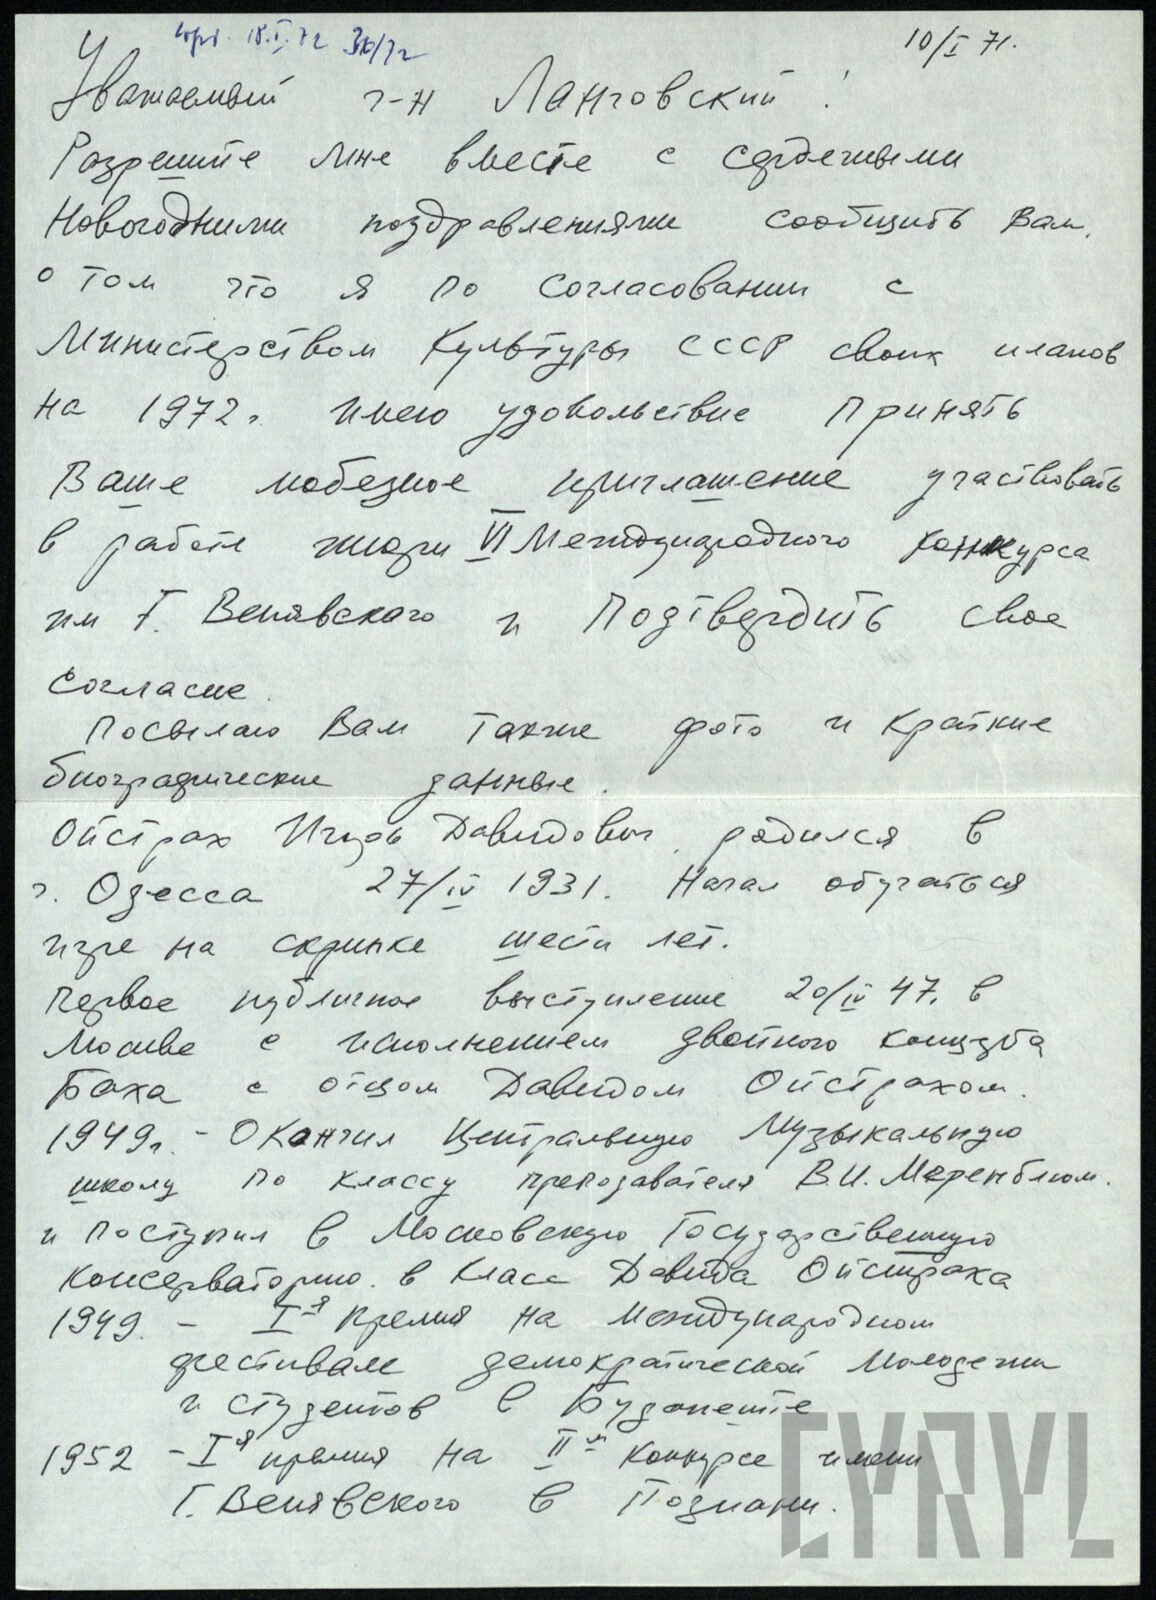 18.I.72 36/72
10/I 71.
Уважаемый г-н Ланговский!
Разрешите мне вместе с сердечными
Новогодними поздравлениями сообщить Вам,
о том что я по согласовании с
Министерством Культуры СССР своих планов
на 1972г. имею удовольствие Принять
Ваше любезное приглашение участвовать
в работе жюри VI Международного конкурса
им Г. Венявского и Подтвердить свое
согласие.
Посылаю Вам также фото и краткие
биографические данные.
Ойстрах Игорь Давидович, родился в
г. Одесса 27/IV 1931. Начал обучаться
игре на скрипке шести лет.
Первое публичное выступление 20/IV 47. в
Москве с исполнением двойного концерта
Баха с отцом Давидом Ойстрахом.
1949г. - Окончил Центральную Музыкальную
школу по классу преподавателя В.И. Меренблюм.
и поступил в Московскую Государственную
консерваторию. в класс Давида Ойстраха
1949. - I-я премия на международном
фестивале демократической молодежи
и студентов в Будапеште
1952 - I-я премия на II-м конкурсе имени
Г. Венявского в Познани.
CYRYL